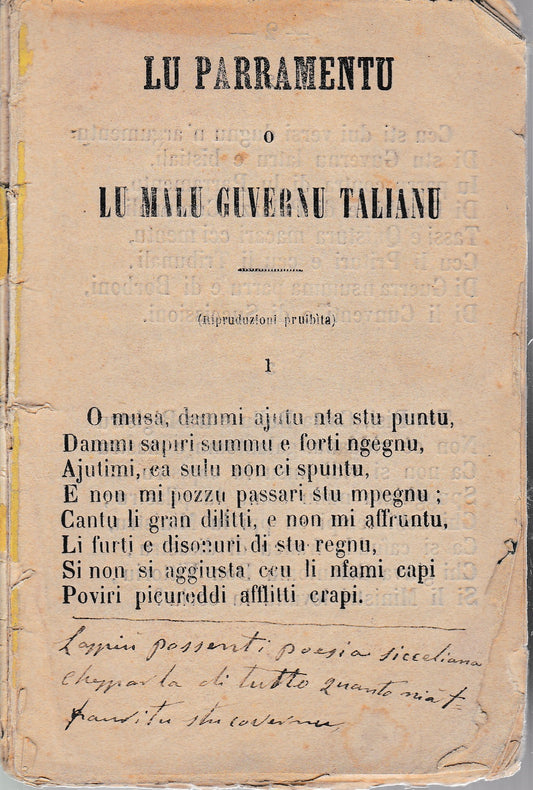 LU PARRAMENTU
O
LU MALU GUVERNU TALIANU
(Ripruduzioni pruibita)
1
O musa, dammi ajutu nta stu puntu,
Dammi sapiri summu e forti ngegnu,
Ajutimi, ca sulu non ci spuntu,
E non mi pozzu passari stu mpegnu;
Cantu li gran dilitti, e non mi affruntu,
Li furti e disonuri di stu regnu,
Si non si aggiusta ccu li nfami capi
Poviri picureddi afflitti crapi.
possenti poesia sicceliana
di tutto quanto
stu covernu